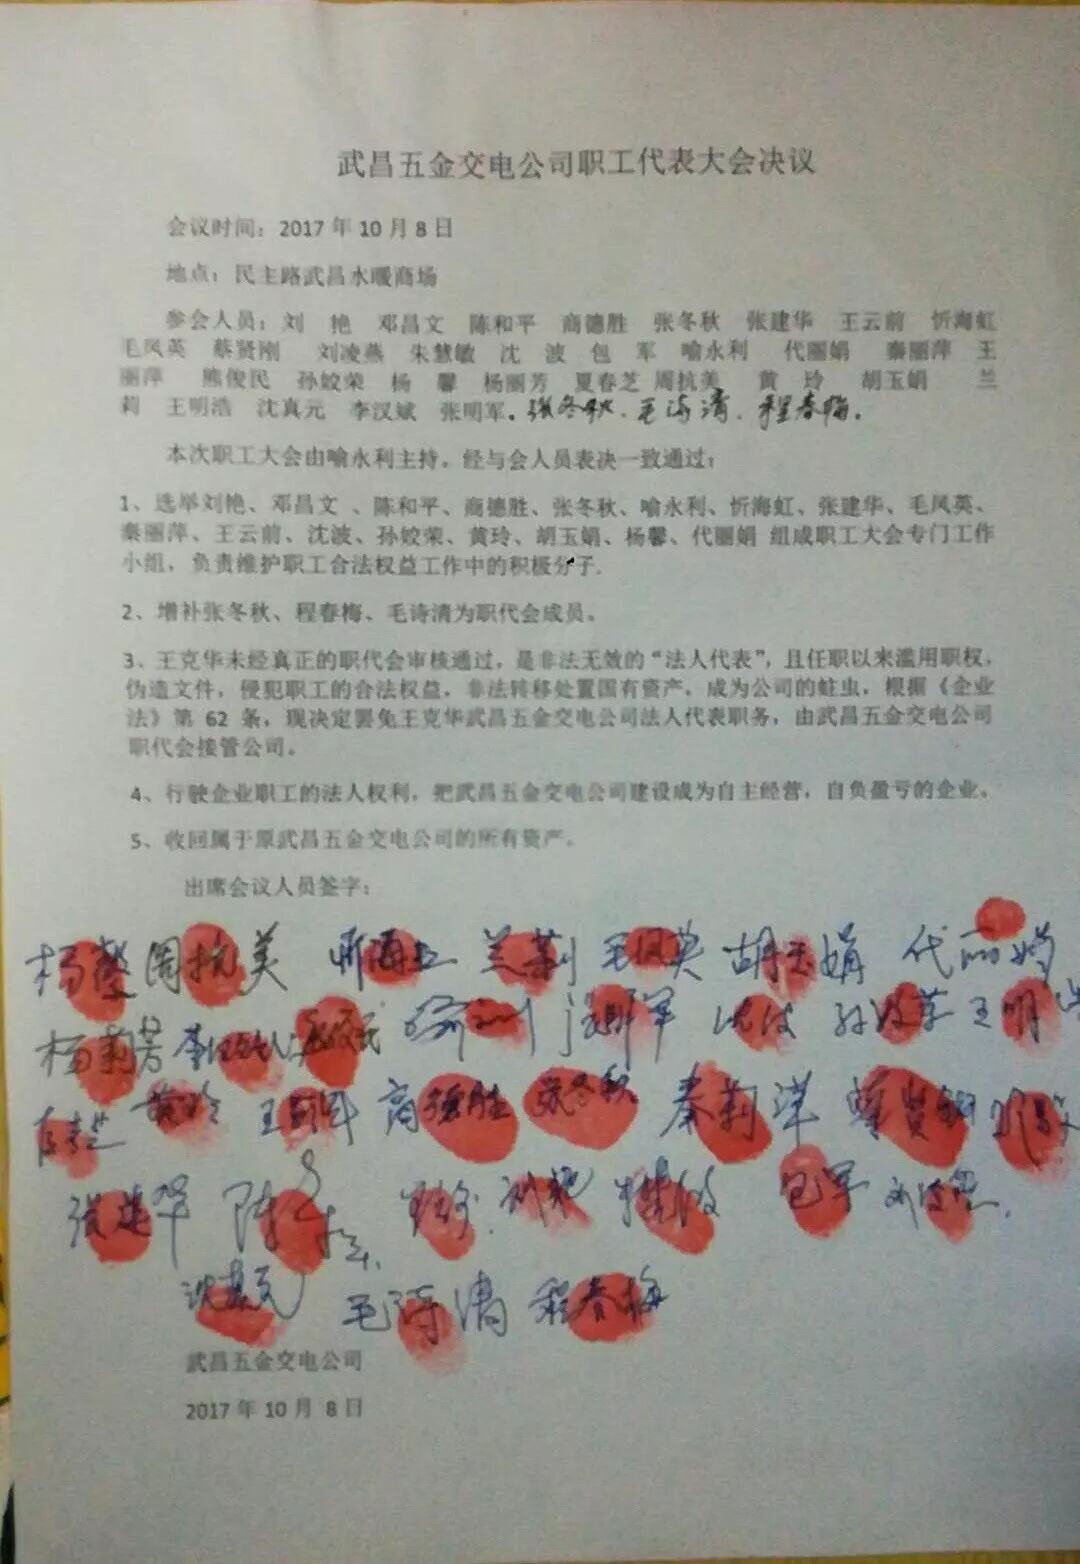 武昌五金交电公司职工代表大会决议
会议时间：2017 年 10 月 8 日
地点：民主路武昌水暖商场
参会人员：刘　艳　邓昌文　陈和平　商德胜　张冬秋　张建华　王云前　忻海虹
毛凤英　蔡贤刚　刘凌燕　朱慧敏　沈　波　包　军　喻永利　代丽娟　秦丽萍　王
丽萍　熊俊民　孙姣荣　杨　馨　杨丽芳　夏春芝　周抗美　黄　玲　胡玉娟　兰
莉　王明浩　沈真元　李汉斌　张明军．张冬秋．毛诗清．程春梅．
本次职工大会由喻永利主持，经与会人员表决一致通过：
1、选举刘艳、邓昌文 、陈和平、商德胜、张冬秋、喻永利、忻海虹、张建华、毛凤英、
秦丽萍、王云前、沈波、孙姣荣、黄玲、胡玉娟、杨馨、代丽娟 组成职工大会专门工作
小组，负责维护职工合法权益工作中的积极分子.
2、增补张冬秋、程春梅、毛诗清为职代会成员。
3、王克华未经真正的职代会审核通过，是非法无效的“法人代表”，且任职以来滥用职权，
伪造文件，侵犯职工的合法权益，非法转移处置国有资产，成为公司的蛀虫，根据《企业
法》第 62 条，现决定罢免王克华武昌五金交电公司法人代表职务，由武昌五金交电公司
职代会接管公司。
4、行驶企业职工的法人权利，把武昌五金交电公司建设成为自主经营，自负盈亏的企业。
5、收回属于原武昌五金交电公司的所有资产。
出席会议人员签字：
杨馨 周抗美 忻海虹 兰莉 毛凤英 胡玉娟 代丽娟
杨莉芳 沈波 孙姣荣 王明浩
黄玲 商德胜 张冬秋 秦莉萍 蔡贤刚
张建华 刘艳 包军 刘凌燕
沈真元 毛诗清 程春梅
武昌五金交电公司
2017 年 10 月 8 日